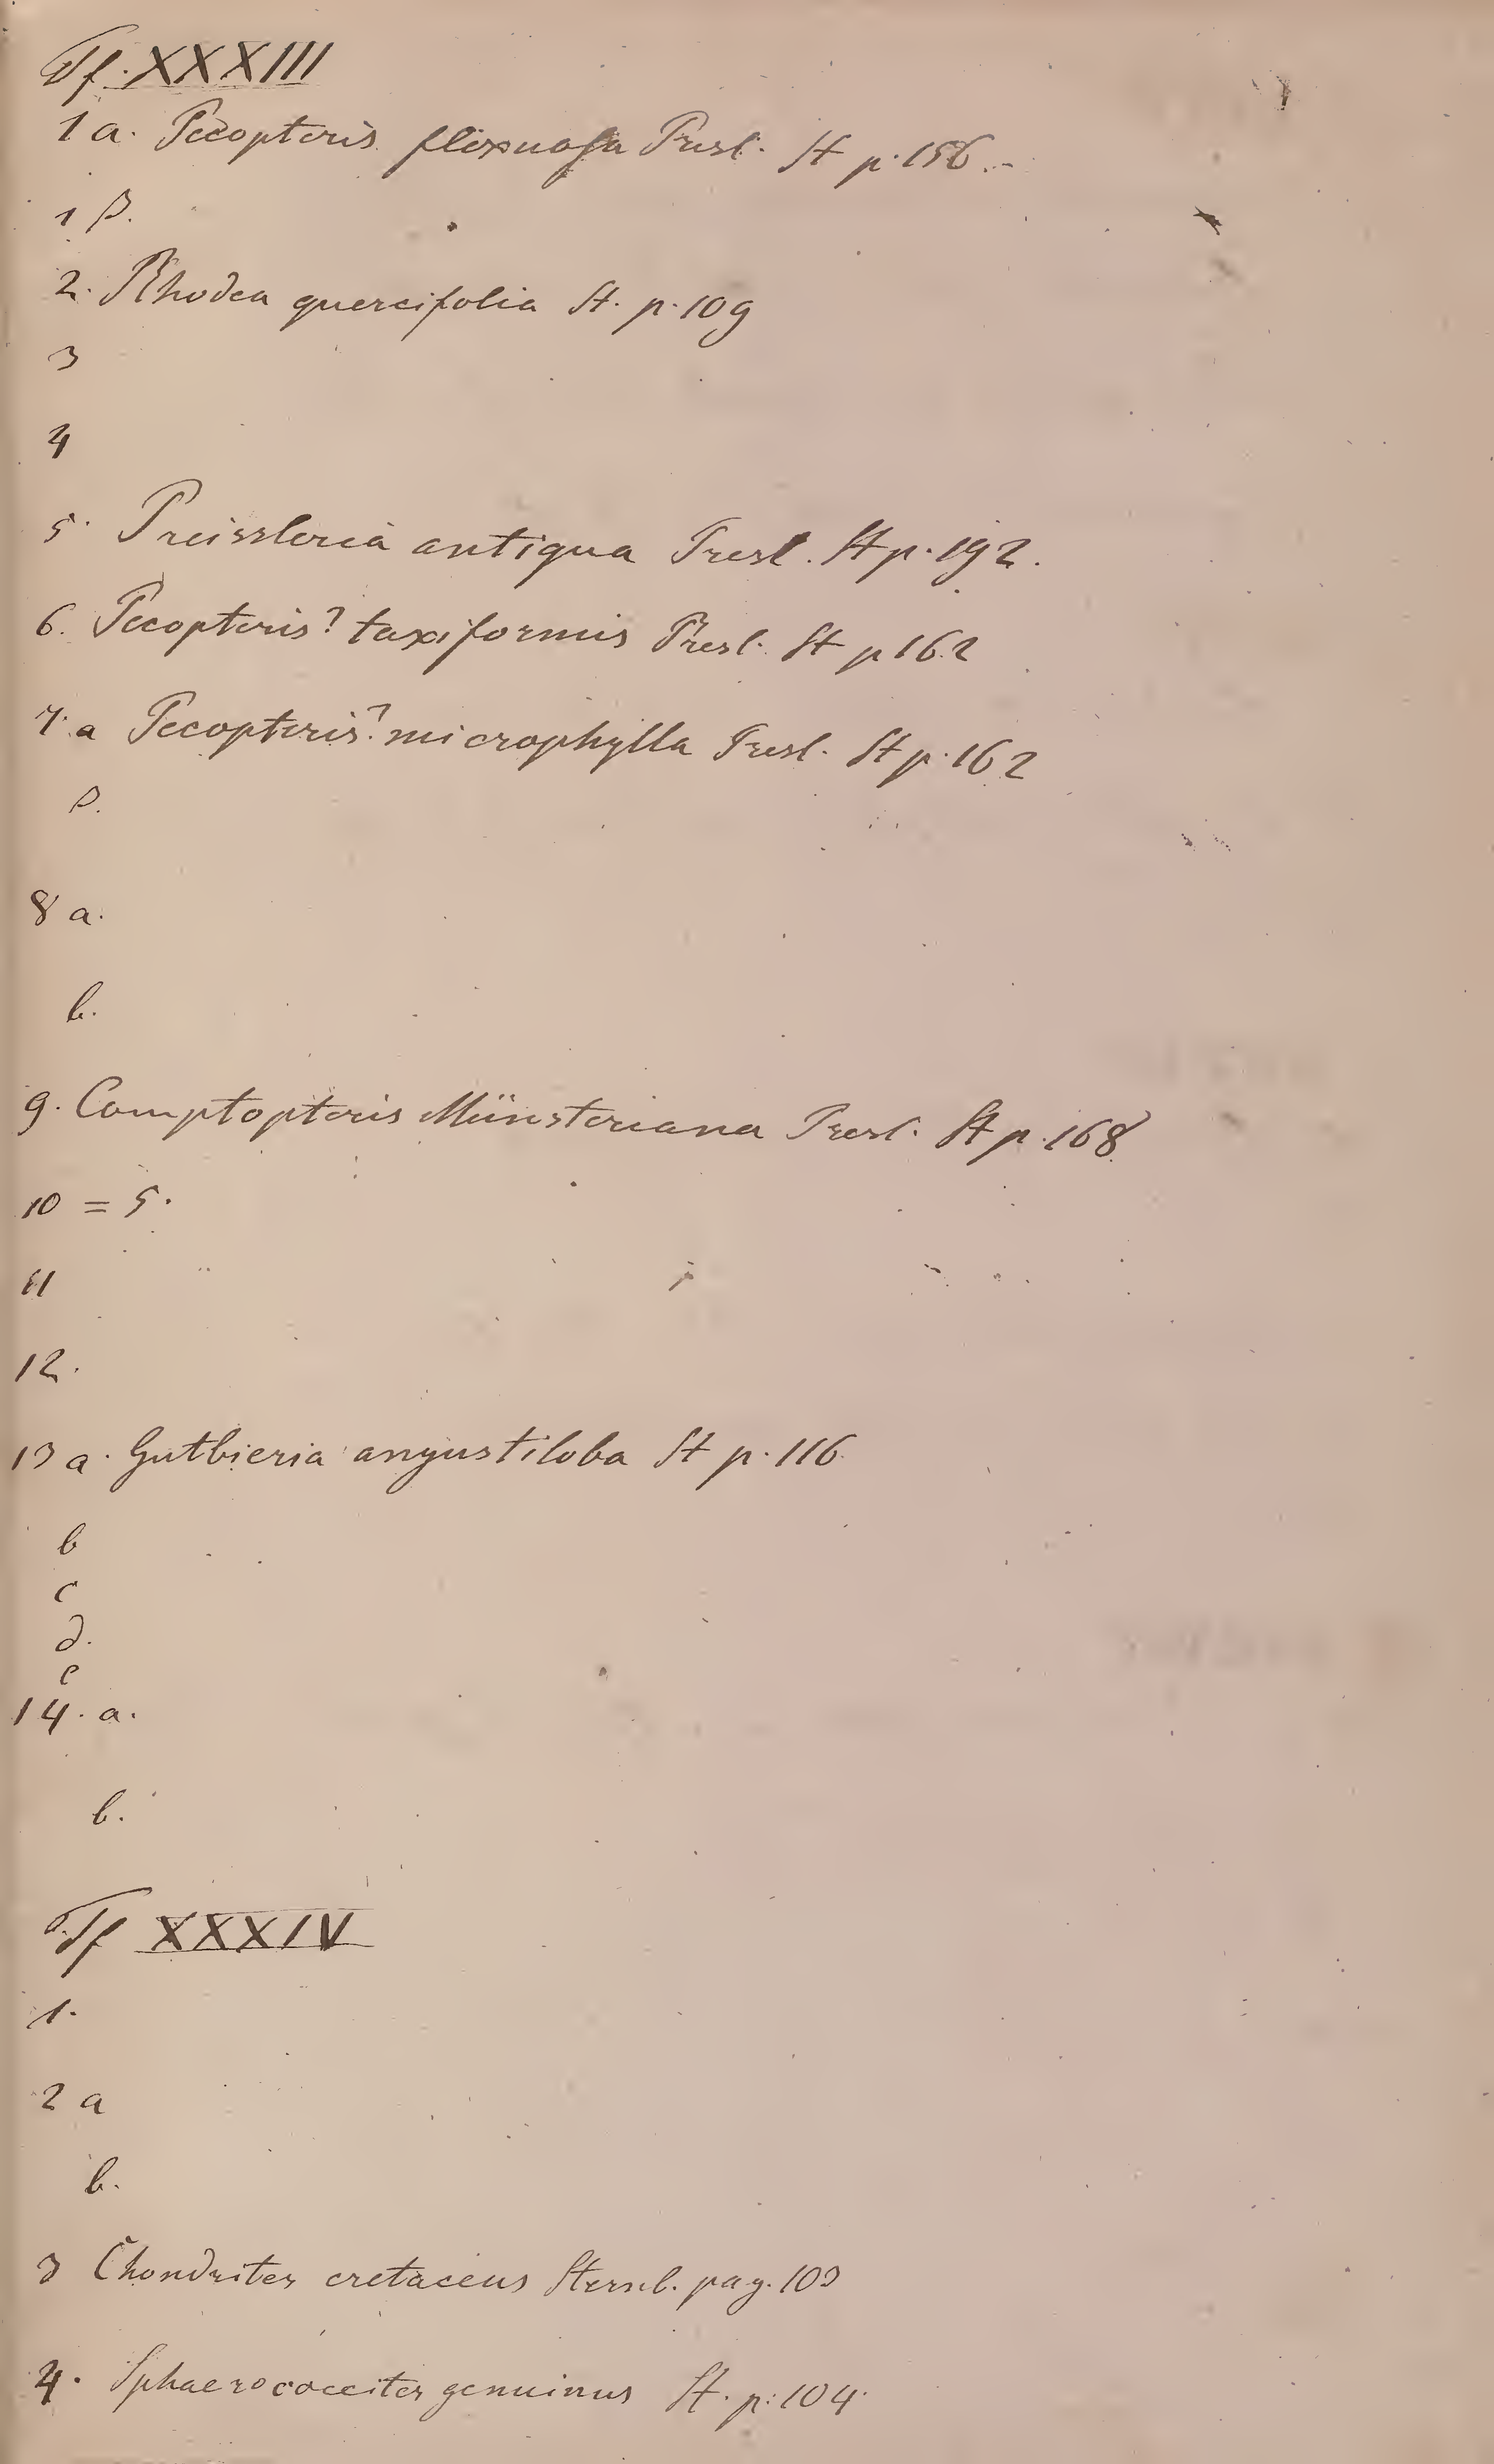 Tf. XXXIII
1 a. Pecopteris flexuosa Presl. St p. 156.-
1 β.
2. Rhodea quercifolia St. p. 109
3
4
5. Preissleria antiqua Presl. St p. 192.
6. Pecopteris? taxiformis Presl. St p 162
7. a Pecopteris? microphylla Presl. St p. 162
β.
8 a.
b.
9. Comptopteris Münsteriana Presl. St p. 168
10 = 5.
11
12.
13 a. Gutbieria angustiloba St p. 116
b
c
d.
e
14. a.
b.
Tf XXXIV
1.
2 a
b.
3 Chondrites cretaceus Sternb. pag. 103
4. Sphaerococcites genuinus St. p. 104